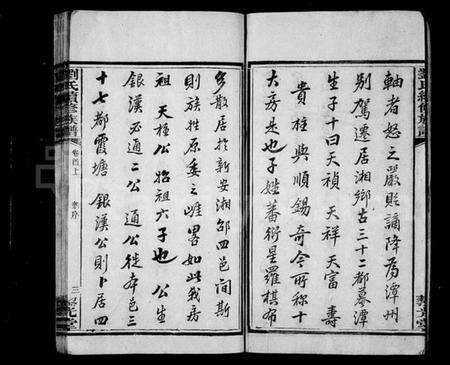 軸者怒之嚴貶謫降為潭州
別駕遷居湘鄉古三十二都慕潭
生子十曰天禎 天祥 天富 壽
貴柱與順錫奇今所称十
大房是也子姓蕃衍星羅棋布
多散居於新安湘邵四邑間斯
則族姓原委之崖畧如此我房
祖 天極公 始祖六子也 公生
銀漢必通二公 通公徙本邑三
十七都霞塘 銀漢公則卜居四
劉氏續修族譜 卷首上 老序 三